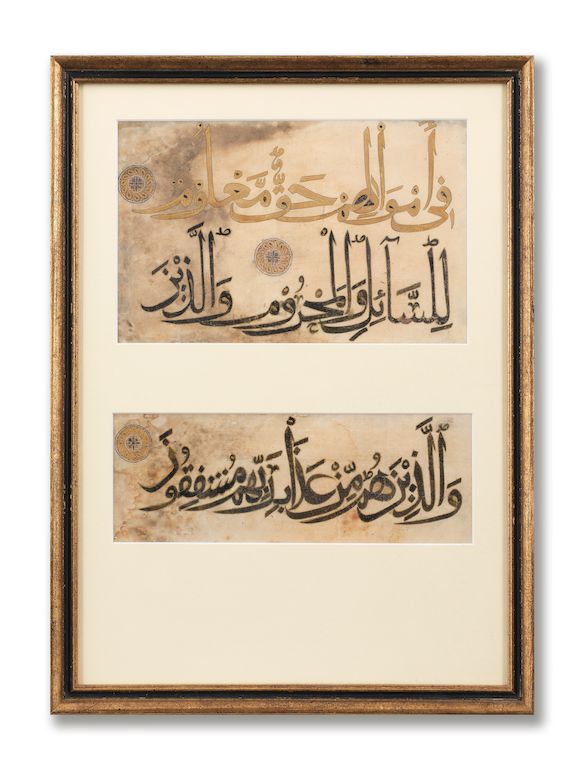 فِي أَمْوَالِهِمْ حَقٌّ مَعْلُومٌ
لِلسَّآئِلِ وَالْمَحْرُومِ وَالَّذِينَ
وَالَّذِينَ هُمْ مِنْ عَذَابِ رَبِّهِمْ مُشْفِقُونَ